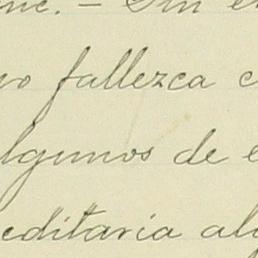 - Sin e
fallezca c
lgunos de e
editaria alg